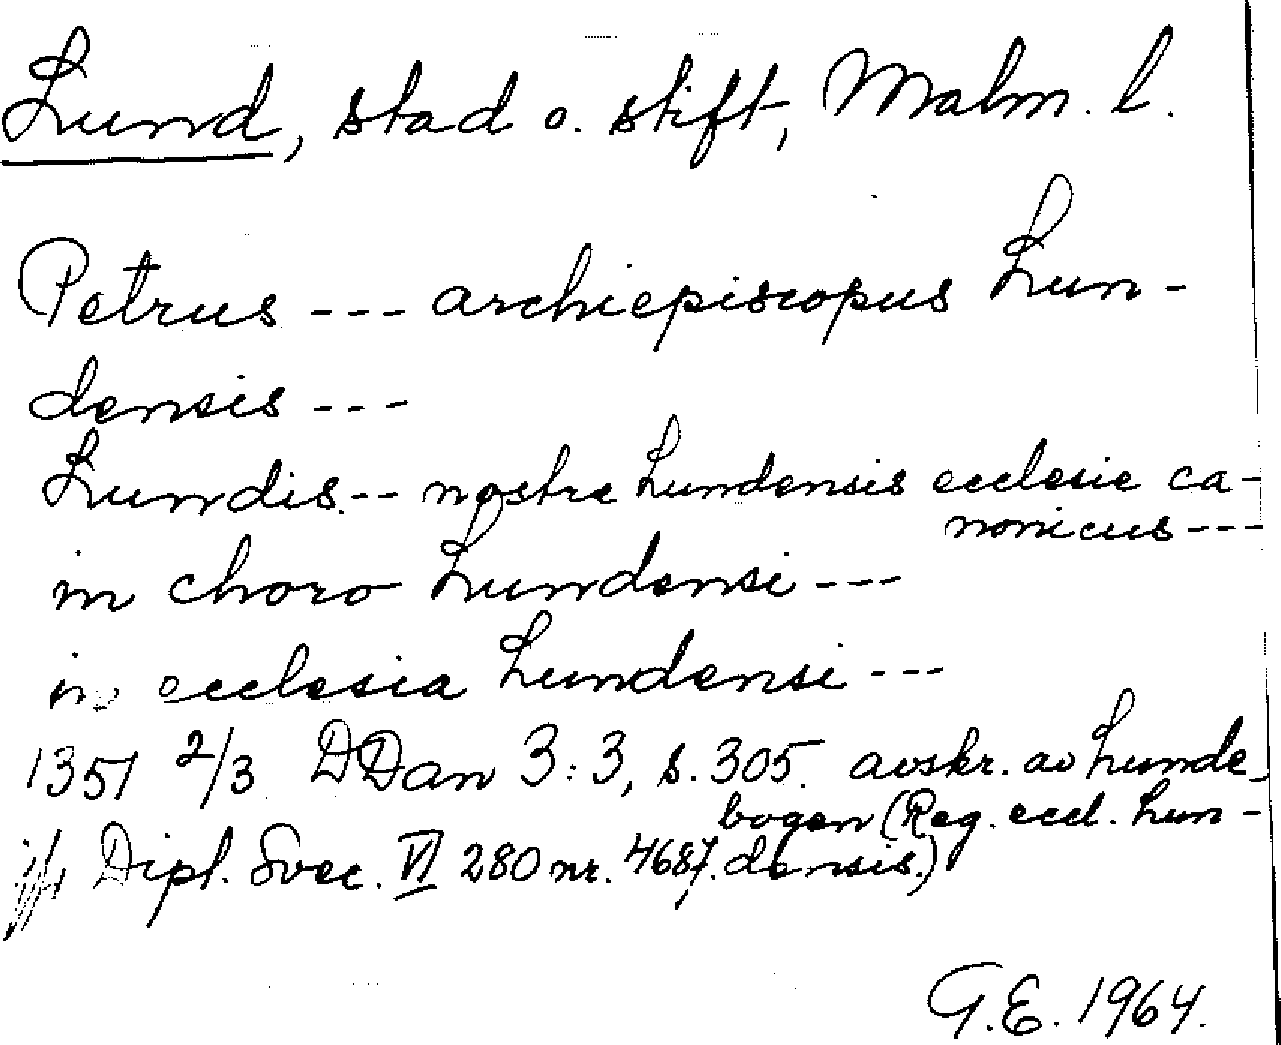 Lund, stad o. stift, Malm. l.
Petrus --- archiepiscopus Lun-
densis ---
Lundis.-- nostre Lundensis ecclesie ca-
nonicus ---
in choro Lundensi ---
in ecclesia Lundensi ---
1351 2/3 DDan 3:3, s. 305. avskr. av Lunde-
bogen (Reg. eccl. Lun-
densis.)
Dipl. Svec. VI 280 nr. 4687.
G.E. 1964.